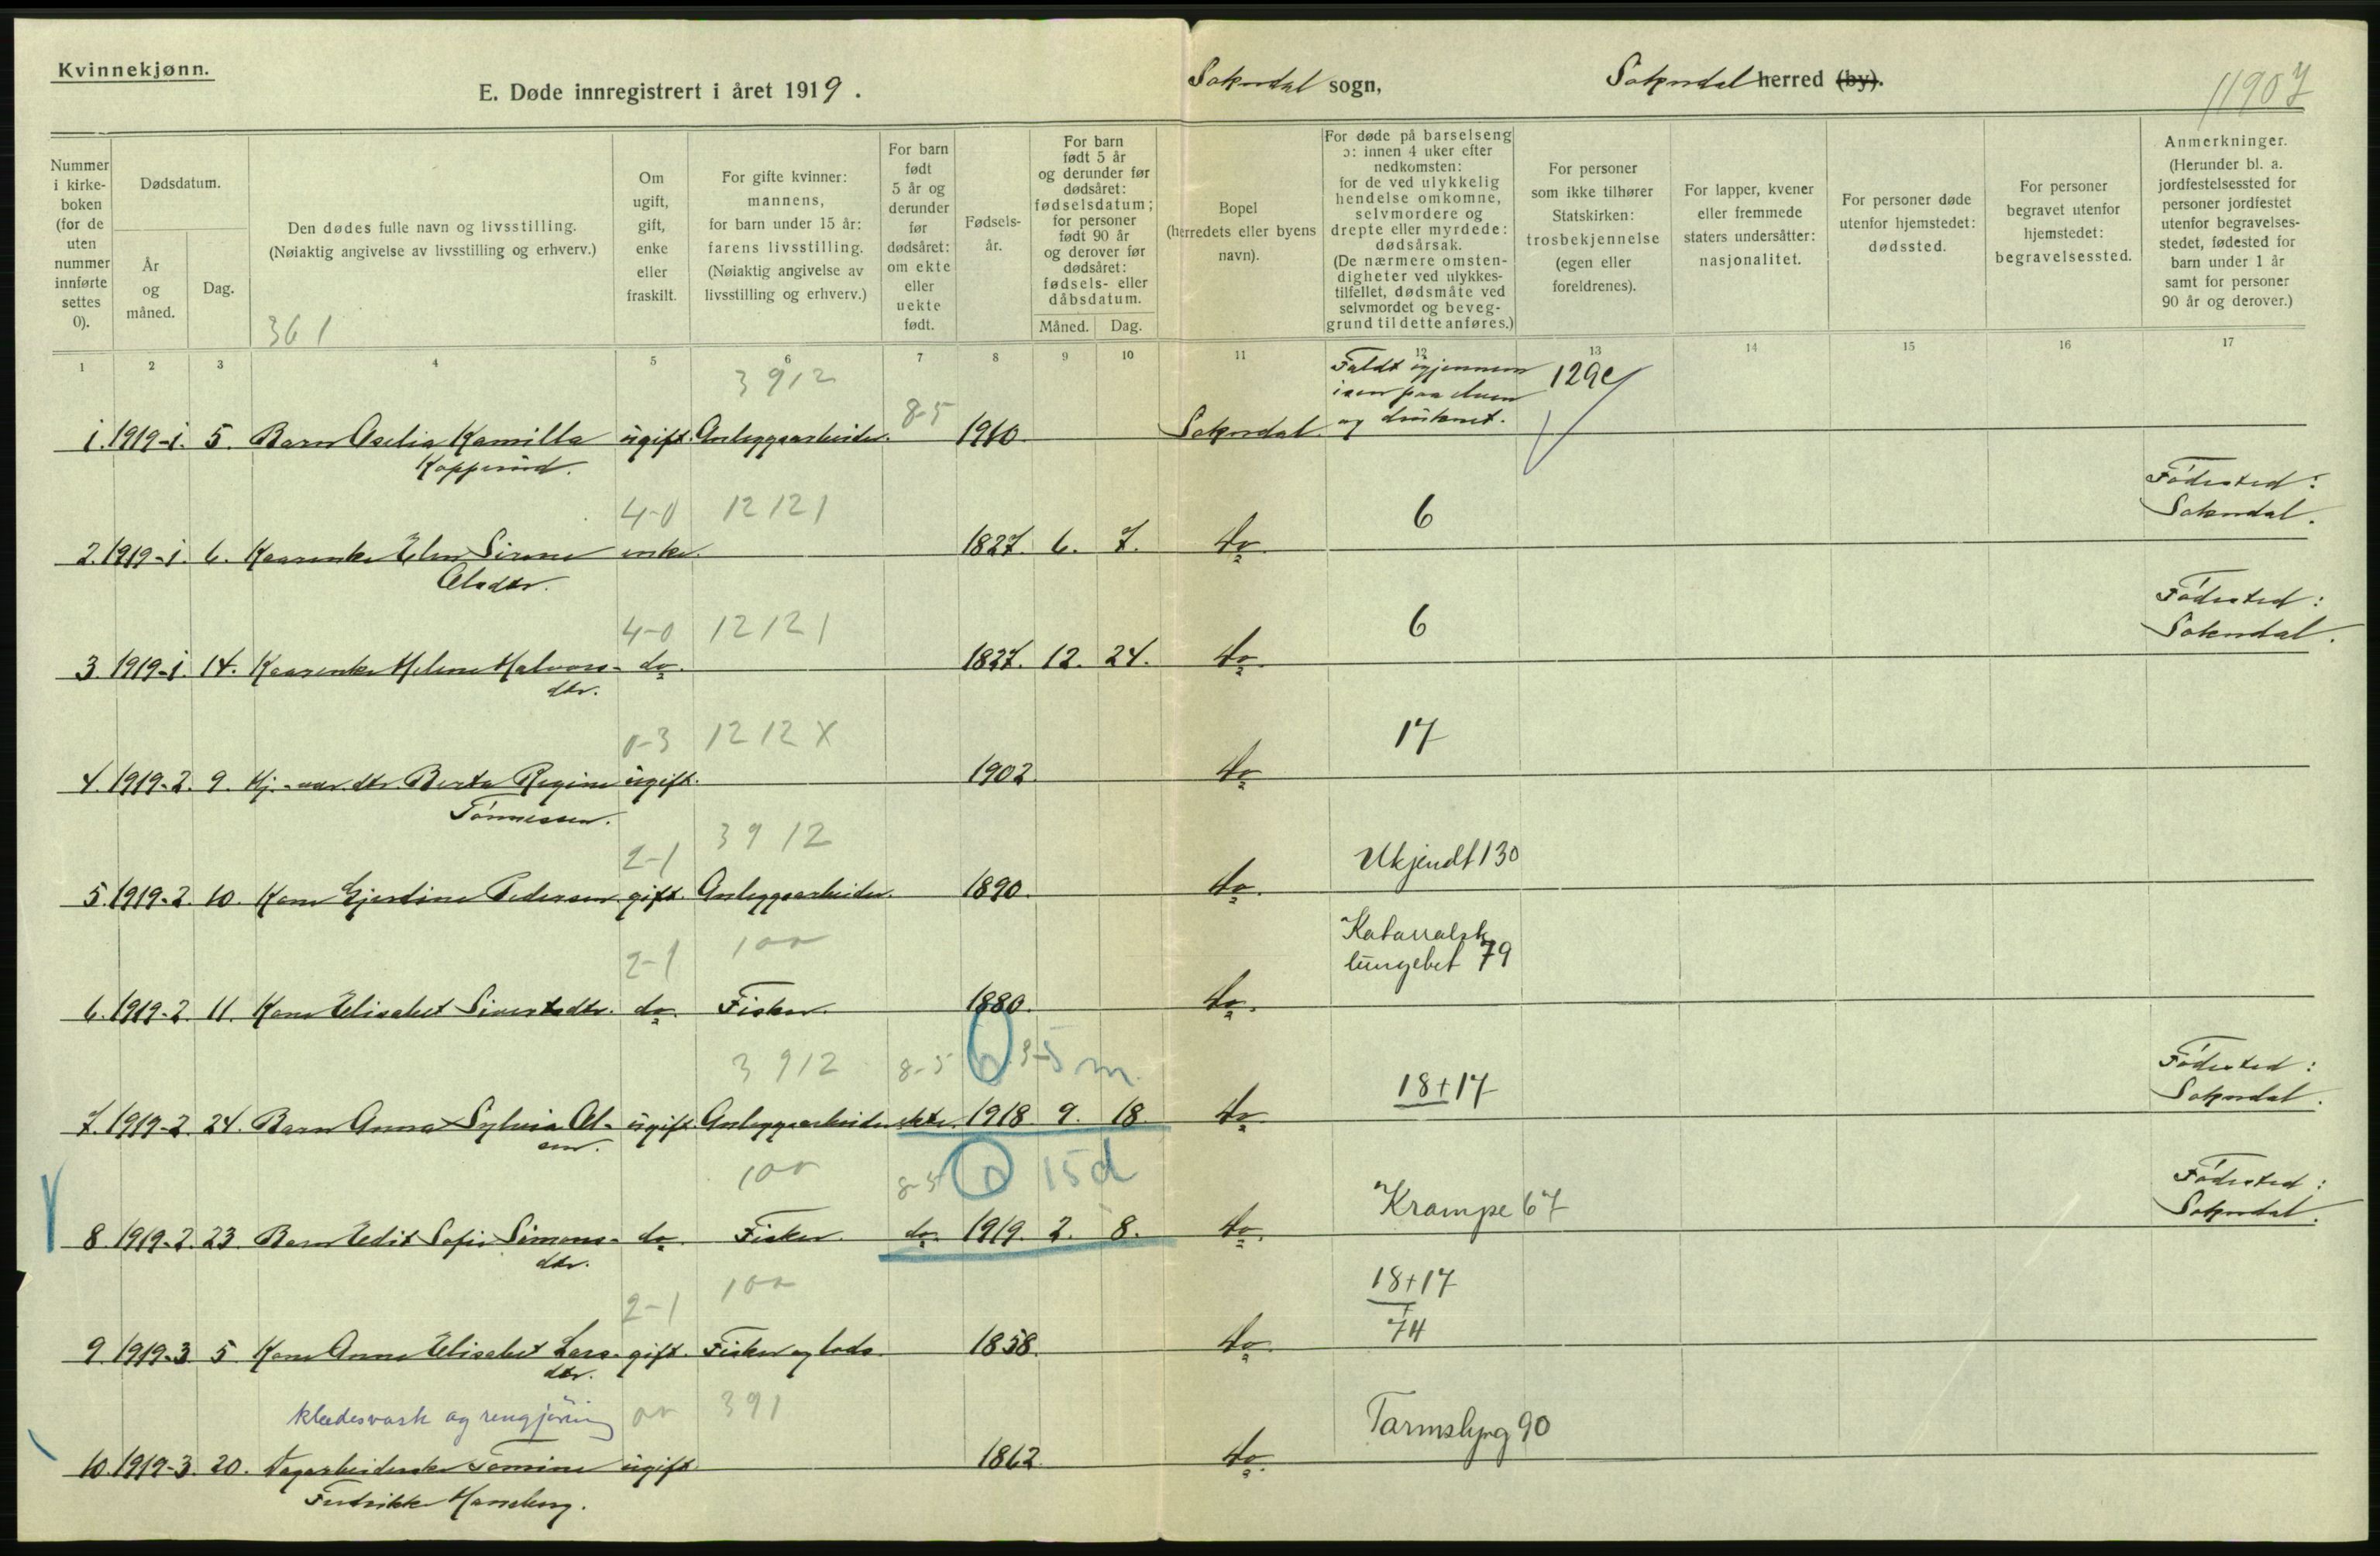 Kvinnekjønn.
E. Døde innregistrert i året 1919.
Sokndal sogn,
Sokndal herred (by).
11907
Nummer i kirke-boken (for de uten nummer innførte settes 0).
Dødsdatum.
År og måned.
Dag.
Den dødes fulle navn og livsstilling.
(Nøiaktig angivelse av livsstilling og erhverv.)
361
Om ugift, gift, enke eller fraskilt.
For gifte kvinner: mannens, for barn under 15 år: farens livsstilling.
(Nøiaktig angivelse av livsstilling og erhverv.)
For barn født 5 år og derunder før dødsåret: om ekte eller uekte født.
Fødsels-år.
For barn født 5 år og derunder før dødsåret: fødselsdatum; for personer født 90 år og derover før dødsåret: fødsels- eller dåbsdatum.
Måned. Dag.
Bopel (herredets eller byens navn).
For døde på barselseng ɔ: innen 4 uker efter nedkomsten: for de ved ulykkelig hendelse omkomne, selvmordere og drepte eller myrdede: dødsårsak.
(De nærmere omsten-digheter ved ulykkes-tilfellet, dødsmåte ved selvmordet og beveg-grund til dette anføres.)
For personer som ikke tilhører Statskirken: trosbekjennelse (egen eller foreldrenes).
For lapper, kvener eller fremmede staters undersåtter: nasjonalitet.
For personer døde utenfor hjemstedet: dødssted.
For personer begravet utenfor hjemstedet: begravelsessted.
Anmerkninger.
(Herunder bl. a. jordfestelsessted for personer jordfestet utenfor begravelses-stedet, fødested for barn under 1 år samt for personer 90 år og derover.)
1 2 3 4 5 6 7 8 9 10 11 12 13 14 15 16 17
3912 8-5 Faldt igjennem isen paa elven og druknet. 129e
1. 1919-1. 5. Barn Aselia Kamilla ugift. Anleggsarbeider. 1910 Sokndal
4-0 12121 6 Fødested: Sokndal.
2. 1919-1. 6. Kaarenke Elen Sirene enke. 1827. 6. 7. do.
Olsdtr.
4-0 12121 6 Fødested: Sokndal.
3. 1919-1. 14. Kaarenke Helene Halvors- do. 1827. 12. 24. do.
dtr.
0-3 1212X 17
4. 1919-2. 9. Hj.-vær. dtr. Berta Regine ugift. 1902 do
Tønnessen.
2-1 3912 Ukjendt 130
5. 1919-2. 10. Kone Gjerdine Pedersen gift. Anleggsarbeider. 1890. do.
2-1 100 Katarralsk lungebet 79
6. 1919-2. 11. Kone Elisabet Sivertsdtr. do. Fisker. 1880. do.
3912 8-5 5 m 18+17 Fødested: Sokndal.
7. 1919-2. 24. Barn Anna Sylvia Ol- ugift. Anleggsarbeider ekte. 1918 9. 18. do
sen.
100 8-5 0 15d Krampe 67 Fødested: Sokndal.
8. 1919-2. 23. Barn Edit Sofie Simons- do. Fisker. do. 1919. 2. 8. do.
dtr.
2-1 100 18+17 74
9. 1919-3 5. Kone Anne Elisabet Lars- gift. Fisker og lods. 1858. do.
dtr.
klædesvask og rengjøring 391 Tarmslyng 90
10. 1919-3. 20. Dagarbeiderske Tomine ugift 1862. do.
Fredrikke